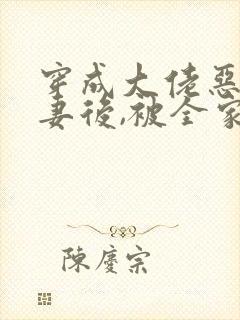 穿成大佬惡
妻後,被全家
陳慶宗